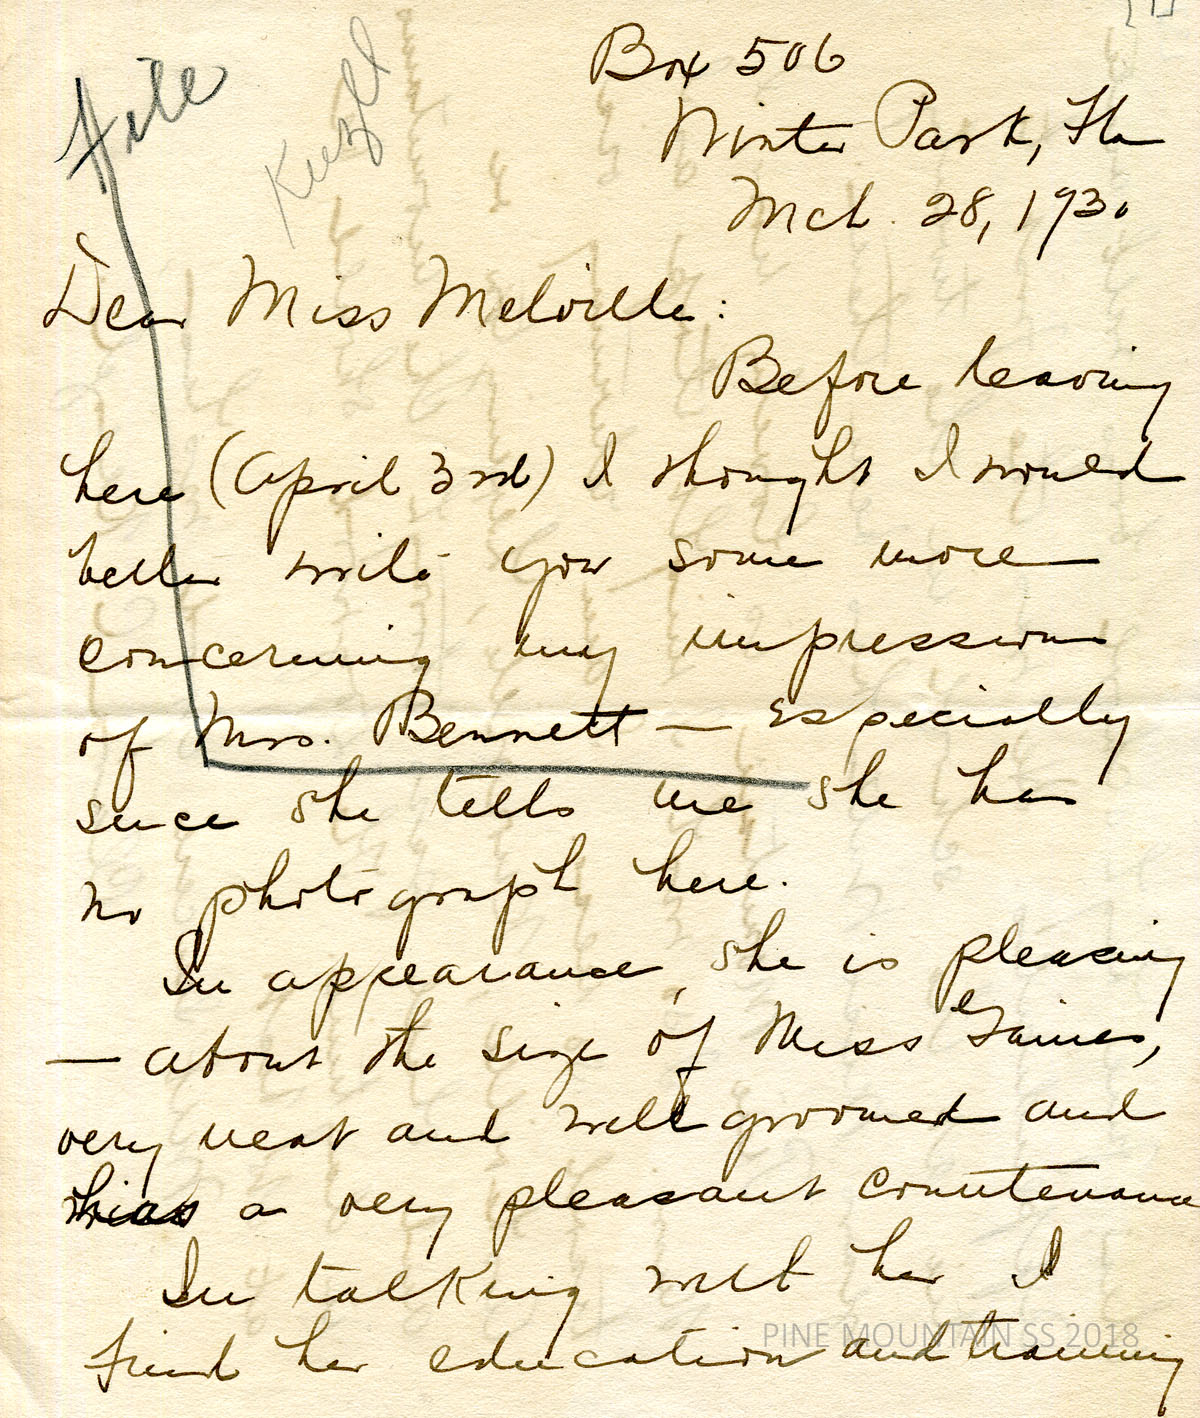 File
Box 506
Winter Park, Fla
Mch. 28, 1930
Dear Miss Melville:
Before leaving
here (April 3rd) I thought I would
better write you some more
concerning my impression
of Mrs. Bennett — especially
since she tells me she has
no photograph here.
In appearance, she is pleasing
— about the size of Miss Gaines,
very neat and well groomed and
has a very pleasant countenance
In talking with her I
find her education and training
PINE MOUNTAIN SS 2018